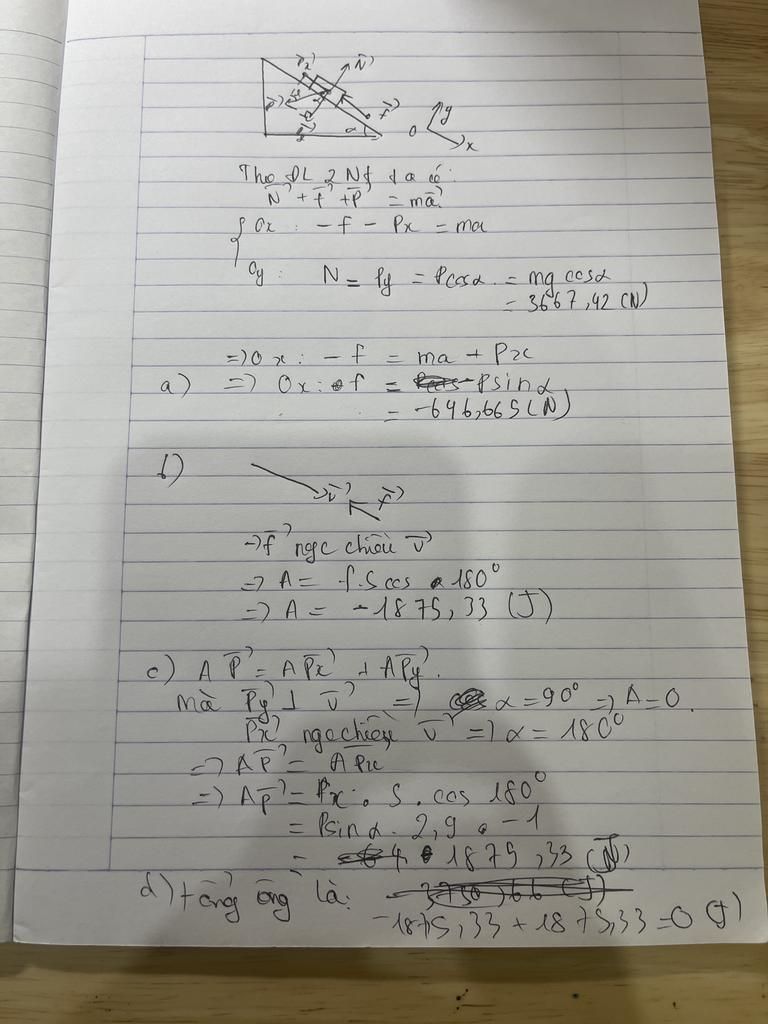 N⃗
f⃗
α
O
y
x
Theo ĐL 2 Nt ta có:
N⃗ + f⃗ + P⃗ = ma⃗
{ Ox : - f - Px = ma
Oy : N = Py = Pcosα = mg cosα
= 3667,42 (N)
=> Ox : - f = ma + Px
a) => Ox : f = - Psinα
= -646,665 (N)
b)
v⃗ f⃗
-> f⃗ ngc chiều v⃗
=> A = f.S cos 180°
=> A = -1875,33 (J)
c) A P⃗ = A P⃗x + A P⃗y
mà P⃗y ⊥ v⃗ => α = 90° => A = 0.
P⃗x ngc chiều v⃗ => α = 180°
=> A P⃗ = A Px
=> A P⃗ = Px . S . cos 180°
= Psinα . 2,9 . -1
= 1875,33 (N)
d) tổng công là: - 3750,66 (J)
-1875,33 + 1875,33 = 0 (J)